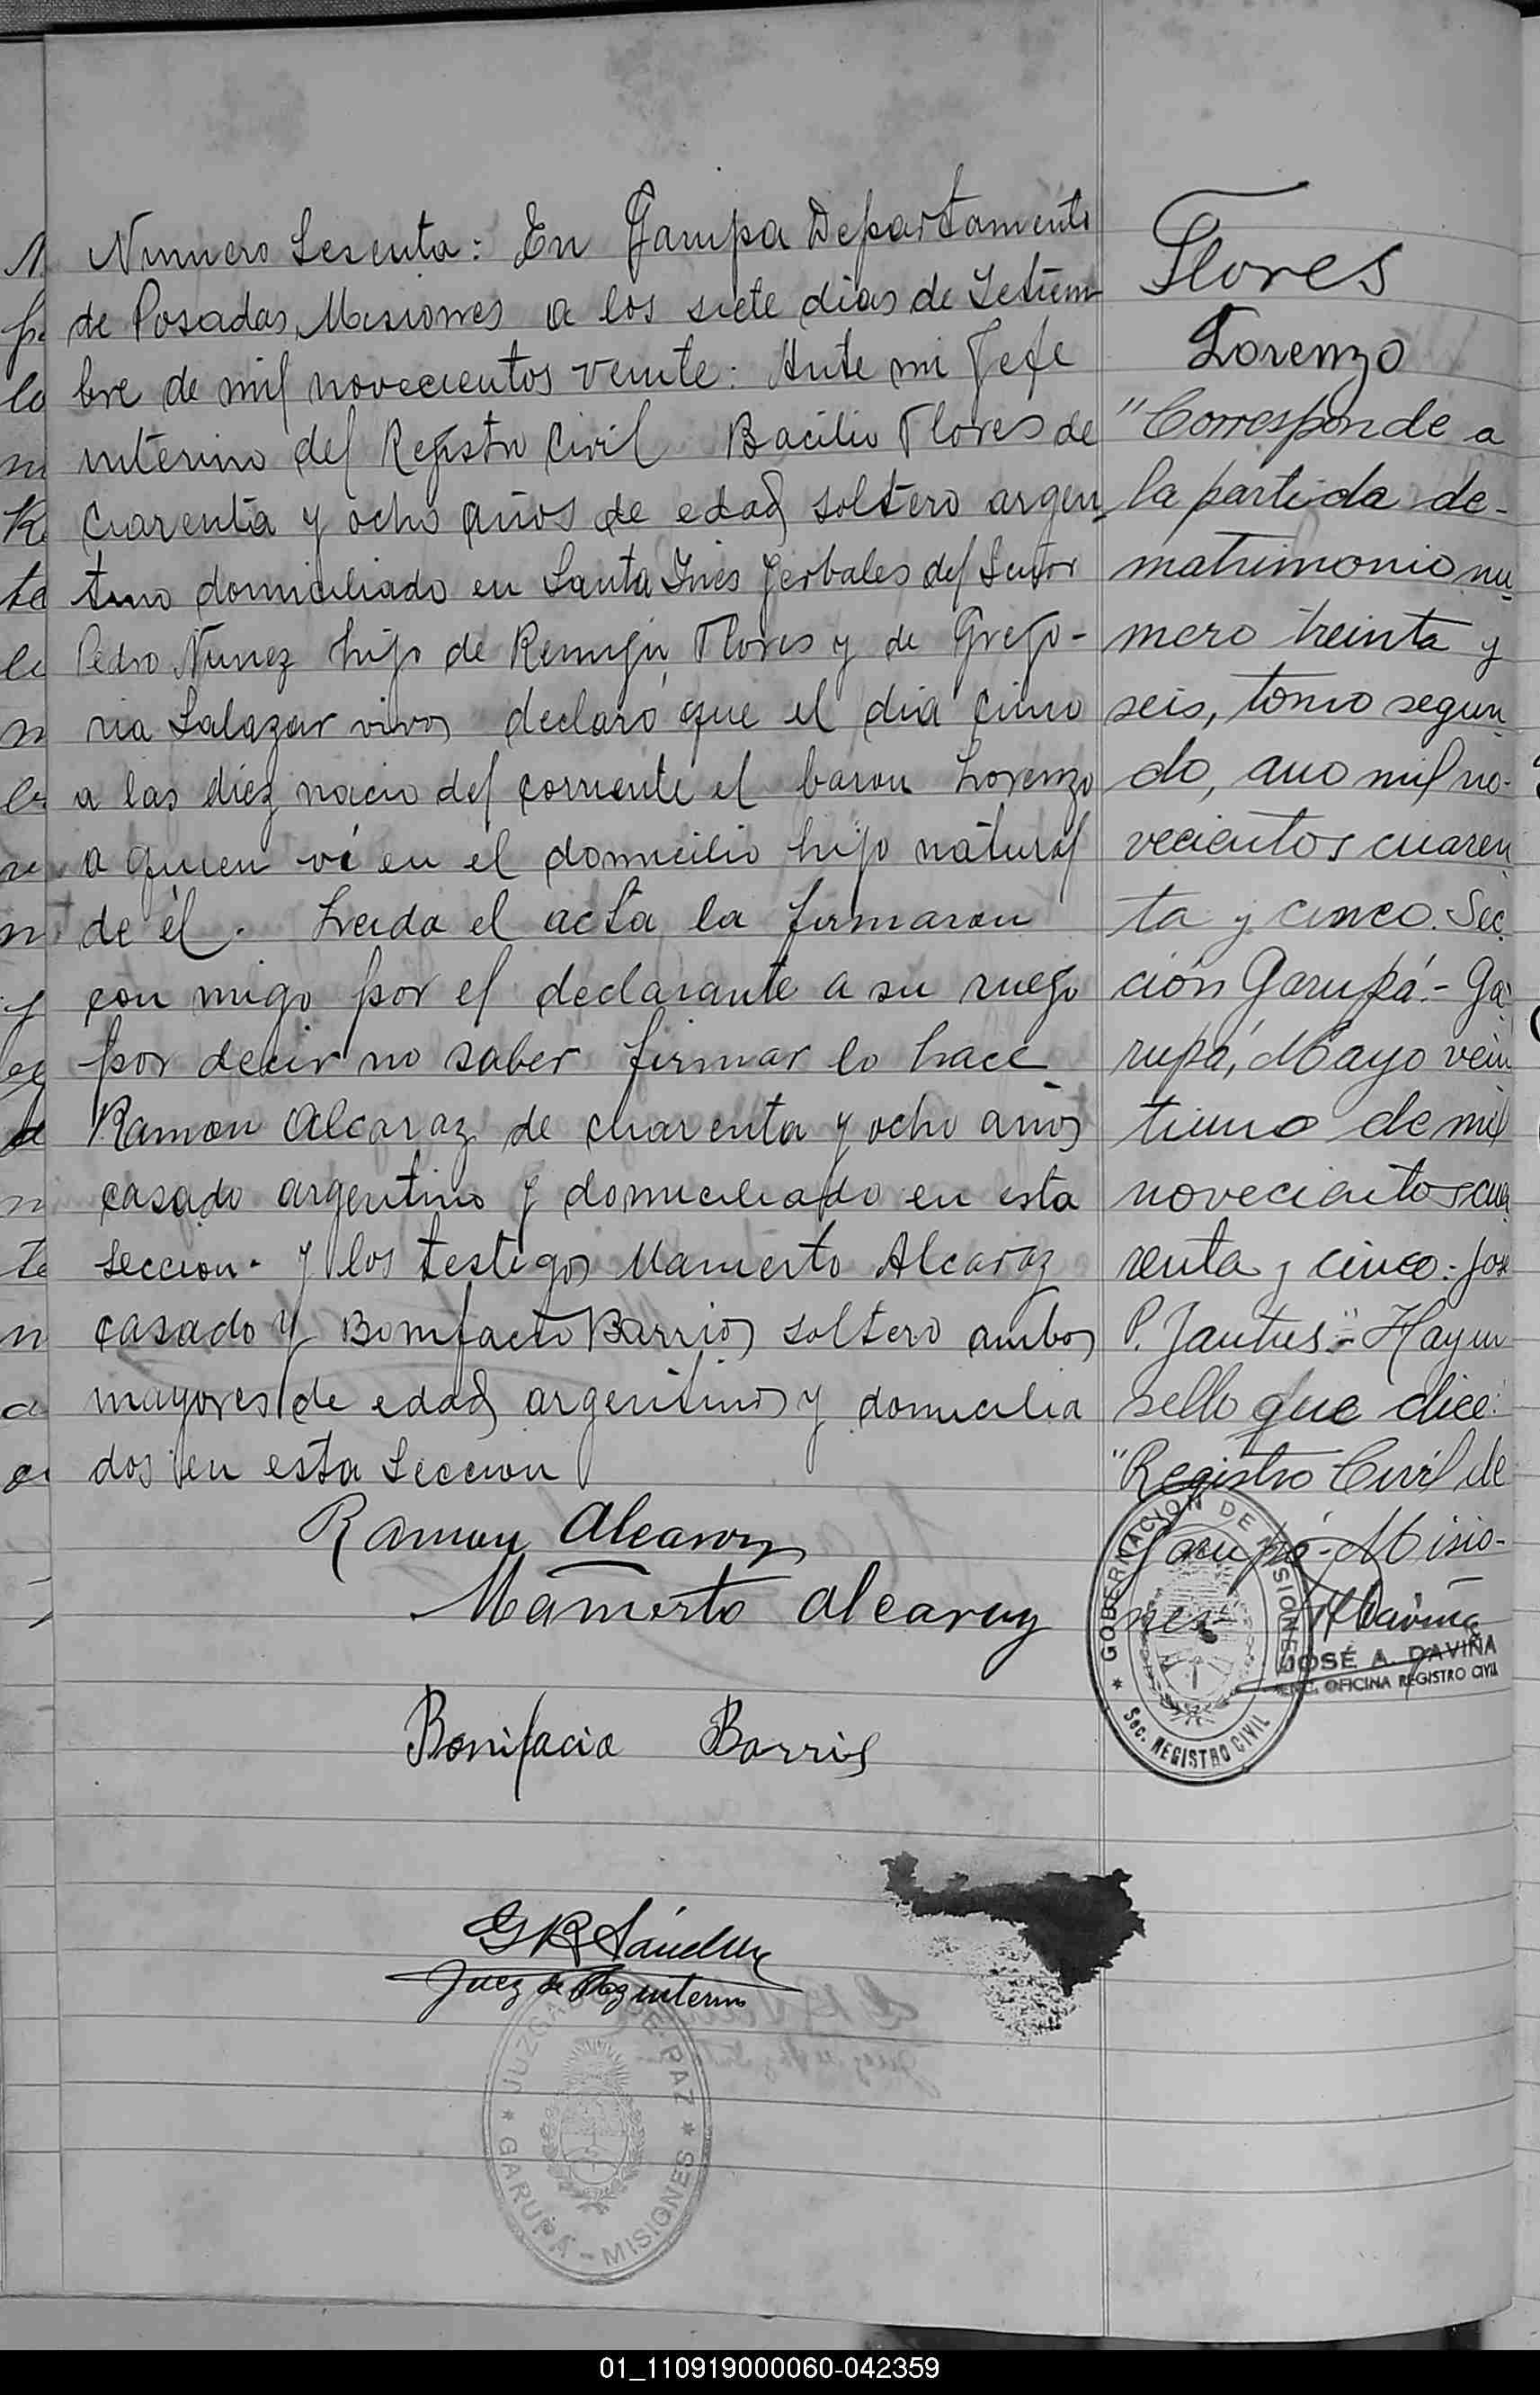 Numero Sesenta: En Garupa Departamento
de Posadas, Misiones a los siete dias de Setiem-
bre de mil novecientos veinte: Ante mi Jefe
interino del Registro Civil Bacilio Flores de
cuarenta y ocho años de edad soltero argen-
tino domiciliado en Santa Ines Yerbales del Señor
Pedro Nunez hijo de Remijio Flores y de Grego-
ria Salazar vivos declaró que el dia cinco
a las diez nacio del corriente el baron Lorenzo
a quien vi en el domicilio hijo natural
de él. Leida el acta la firmaron
con migo por el declarante a su ruego
por decir no saber firmar lo hace
Ramon Alcaraz de cuarenta y ocho años
casado argentino y domiciliado en esta
seccion. y los testigos Mamerto Alcaraz
casado y Bonifacio Barrios soltero ambos
mayores de edad argentinos y domicilia
dos en esta Seccion
Ramon Alcaraz
Mamerto Alcaraz
Bonifacio Barrios
G R Sánchez
Juez de Paz interino
JUZGADO DE PAZ
GARUPÁ - MISIONES
Flores
Lorenzo
"Corresponde a
la partida de-
matrimonio nu-
mero treinta y
seis, tomo segun
do, ano mil no-
vecientos cuaren
ta y cinco. Sec
ción Garupá.- Ga-
rupá, Mayo vein
tiuno de mil
novecientos cua
renta y cinco.- José
P. Jantus".- Hay un
sello que dice:
"Registro Civil de
Garupá- Misio-
nes"
GOBERNACION DE MISIONES
Sec. REGISTRO CIVIL
JOSÉ A. DAVIÑA
ENC. OFICINA REGISTRO CIVIL
01_110919000060-042359